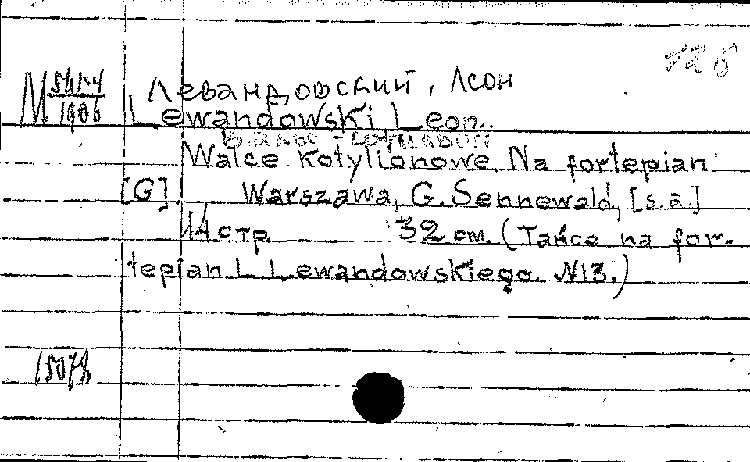 Левандовский, Леон
Lewandowski Leon.
Walce kotylionowe. Na fortepian
[G] Warszawa, G. Sennewald, [s.a.]
11 стр. 32 см. (Tańce na for-
tepian L. Lewandowskiego. N13.)